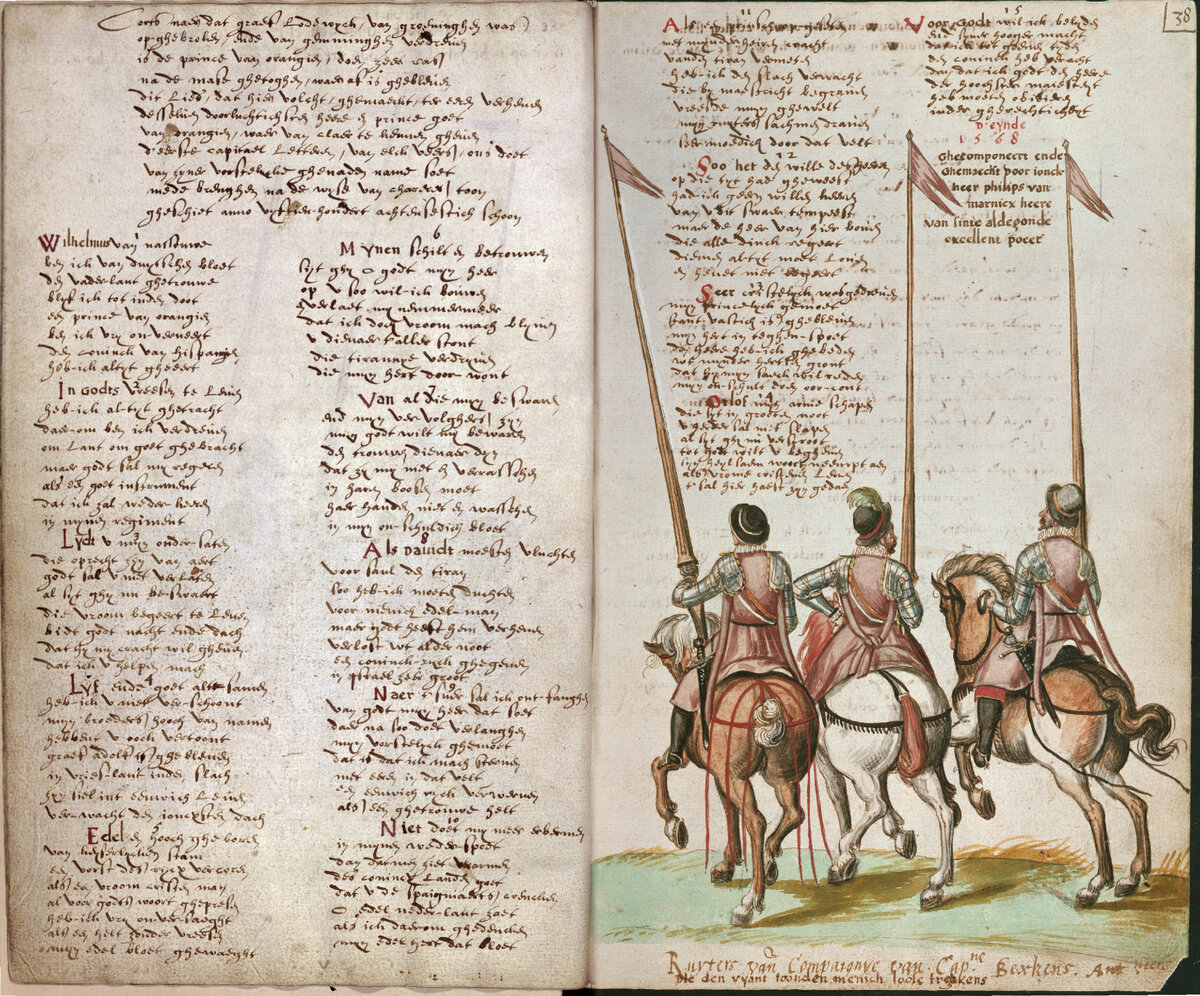 Corts naer dat graef Lodewyck / van groeninghen was
op ghebroken / ende van gemminghen verdreven
is de prince van orangien / doen zeer ras
na de mase ghetoghen / waer af is ghebleven
dit Liedt / dat hier volcht / ghemaeckt / ter eeren verheven
desselven doorluchtichsten heere en prince goet
van orangien / waer van claer te kennen gheven
d'eerste capitael Letteren / van elck veers / ons doet
van zyner vorstelycke ghenaden name soet
mede brenghen na de wyse van chartres toon
gheschiet anno vyfthien hondert achtensestich schoon
1
Wilhelmus van nassouwe
ben ick van duytschen bloet
den vaderlant ghetrouwe
blyf ick tot inden doot
een prince van orangien
ben ick vry onverveert
den coninck van hispangien
heb ick altyt gheeert
2
In Godts vreesen te Leven
heb ick altyt ghetracht
daerom ben ick verdreven
om Lant om goet ghebracht
maer godt sal my regeren
als een goet instrument
dat ick zal weder keeren
in mynen regiment
3
Lydt u myn ondersaten
die oprecht zyn van aert
godt sal u niet verlaten
al syt ghy nu beswaert
die vroom begeert te Leven
bidt godt nacht ende dach
dat hy my cracht wil gheven
dat ick u helpen mach
4
Lyf ende goet al te samen
heb ick u niet verschoont
myn broeders / hooch van namen
hebbent u ooch vertoont
graef adolf is ghebleven
in vrieslant inden slach
zyn siel int eewich Leven
verwacht den joncxsten dach
5
Edel en hooch gheboren
van keyserlycken stam
een vorst des rycx vercoren
als een vroom cristen man
al voor godts woort ghepresen
heb ick vry onversaeght
als een helt zonder vreesen
myn edel bloet ghewaeght
6
Mynen schilt en betrouwen
syt ghy o godt myn heer
op u soo wil ick bouwen
verlaet my nemmermeer
dat ick doch vroom mach blyven
u dienaer t'aller stont
die tirannye verdryven
die myn hert door wont
7
Van al die my beswaren
end myn vervolghers zyn
myn godt wilt my bewaren
den trouwen dienaer dyn
dat zy my niet en verrasschen
in haren boosen moet
haer handen niet en wasschen
in myn onschuldich bloet
8
Als Davidt moesten vluchten
voor saul den tiran
soo heb ick moeten suchten
voor menich edelman
maer godt heeft hem verheven
verlost wt alder noot
een coninckryck ghegeven
in Israel zeer groot
9
Naer t'suer sal ick ontfanghen
van godt myn heer dat soet
daer na soo doet verlanghen
myn vorstelyck ghemoet
dat is dat ick mach sterven
met eeren in dat velt
een eeuwich ryck verwerven
als een ghetrouwe helt
10
Niet doet my meer erbermen
in mynen wederspoet
dan datmen siet verarmen
des conincx Landen goet
dat u de spaigniaerts crencken
o edel nederlant zoet
als ick daerom ghedencken
myn edel hert dat bloet
11
Als een prins op gheseten
met mynder heiren cracht
vanden tiran vermeten
heb ick den slach verwacht
die by maestricht begraven
vreesde myn ghewelt
myn ruyters sachmen draven
seer moedich door dat velt
12
Soo het den wille des heeren
op die tyt had gheweest
had ick geern willen keeren
van u dit swaer tempeest
maer de heer van hier boven
die alle dinck regeert
diemen altyt moet Loven
en hevet niet begeert
13
Seer cristelyck was gedreven
myn princelyck gemoet
stantvastich is ghebleven
myn hert in teghenspoet
den heere heb ick ghebeden
wt mynder herten gront
dat hy myn saeck wil reden
myn onschult doen oorcont
14
Orlof myn arme schapen
die syt in grooten noot
u herder sal niet slapen
al syt ghy nu verstroot
tot godt wilt u begheven
syn heylsaem woort neempt aen
als vrome cristenen Leeft
t'sal hier haest zyn gedaen
15
Voor godt wil ick belyden
end syner hooger macht
dat ick tot geenen tyden
den coninck heb veracht
dan dat ick godt den heere
der hoochster maiesteyt
heb moeten obedieren
inder gherechticheyt
D'eynde
1568
Ghecomponeert ende
Ghemaeckt door jonck
heer philips van
marnicx heere
van sinte aldegonde
excellent poeet
38
Ruyters van Compaignye van Capne Berkens.
Die den vyant toonden menich loose treckens